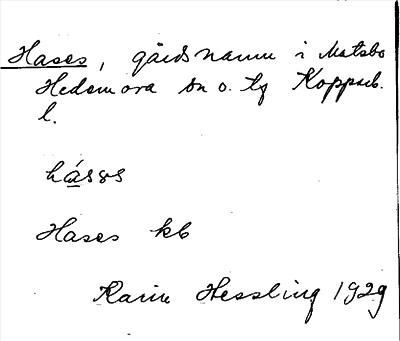 Hases, gårdsnamn i Matsbo
Hedemora sn o. tg Kopparb.
l.
hásɞs
Hases kb
Karin Hessling 1929